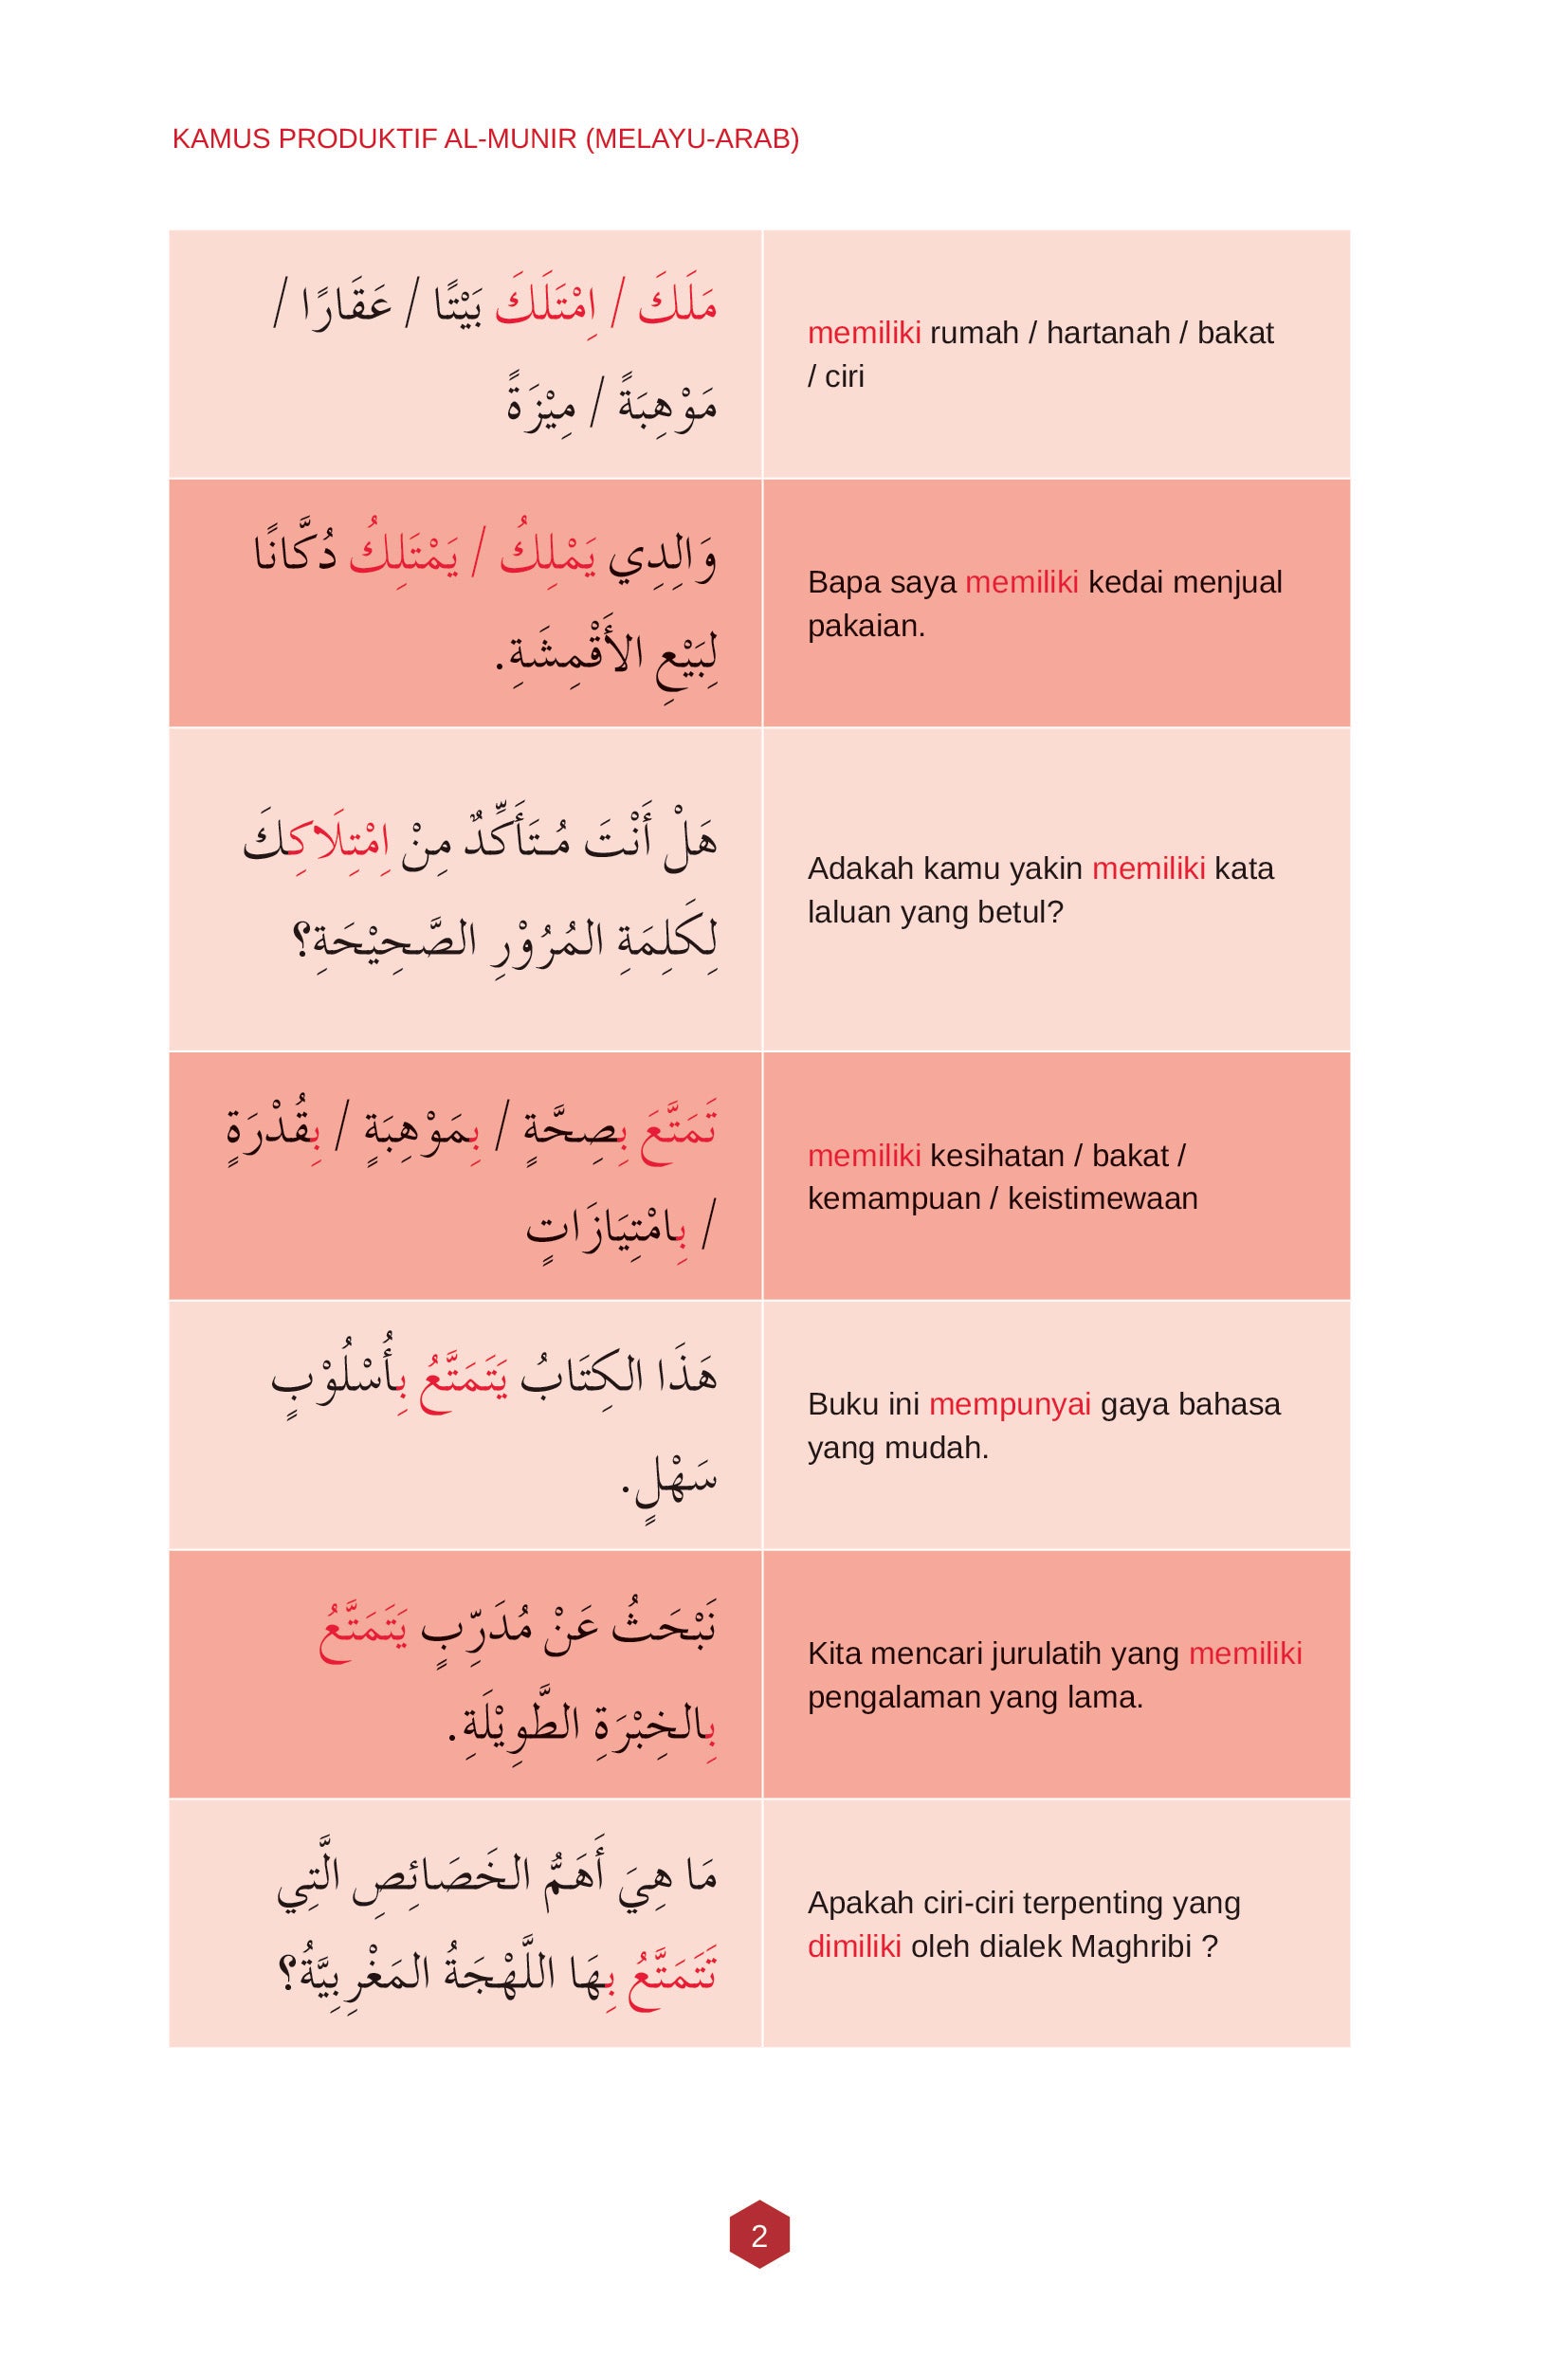 KAMUS PRODUKTIF AL-MUNIR (MELAYU-ARAB)
مَلَكَ / اِمْتَلَكَ بَيْتًا / عَقَارًا /
مَوْهِبَةً / مِيْزَةً
memiliki rumah / hartanah / bakat
/ ciri
وَالِدِي يَمْلِكُ / يَمْتَلِكُ دُكَّانًا
لِبَيْعِ الأَقْمِشَةِ.
Bapa saya memiliki kedai menjual
pakaian.
هَلْ أَنْتَ مُتَأَكِّدٌ مِنْ اِمْتِلَاكِكَ
لِكَلِمَةِ المُرُوْرِ الصَّحِيْحَةِ؟
Adakah kamu yakin memiliki kata
laluan yang betul?
تَمَتَّعَ بِصِحَّةٍ / بِمَوْهِبَةٍ / بِقُدْرَةٍ
/ بِامْتِيَازَاتٍ
memiliki kesihatan / bakat /
kemampuan / keistimewaan
هَذَا الكِتَابُ يَتَمَتَّعُ بِأُسْلُوْبٍ
سَهْلٍ.
Buku ini mempunyai gaya bahasa
yang mudah.
نَبْحَثُ عَنْ مُدَرِّبٍ يَتَمَتَّعُ
بِالخِبْرَةِ الطَّوِيْلَةِ.
Kita mencari jurulatih yang memiliki
pengalaman yang lama.
مَا هِيَ أَهَمُّ الخَصَائِصِ الَّتِي
تَتَمَتَّعُ بِهَا اللَّهْجَةُ المَغْرِبِيَّةُ؟
Apakah ciri-ciri terpenting yang
dimiliki oleh dialek Maghribi ?
2